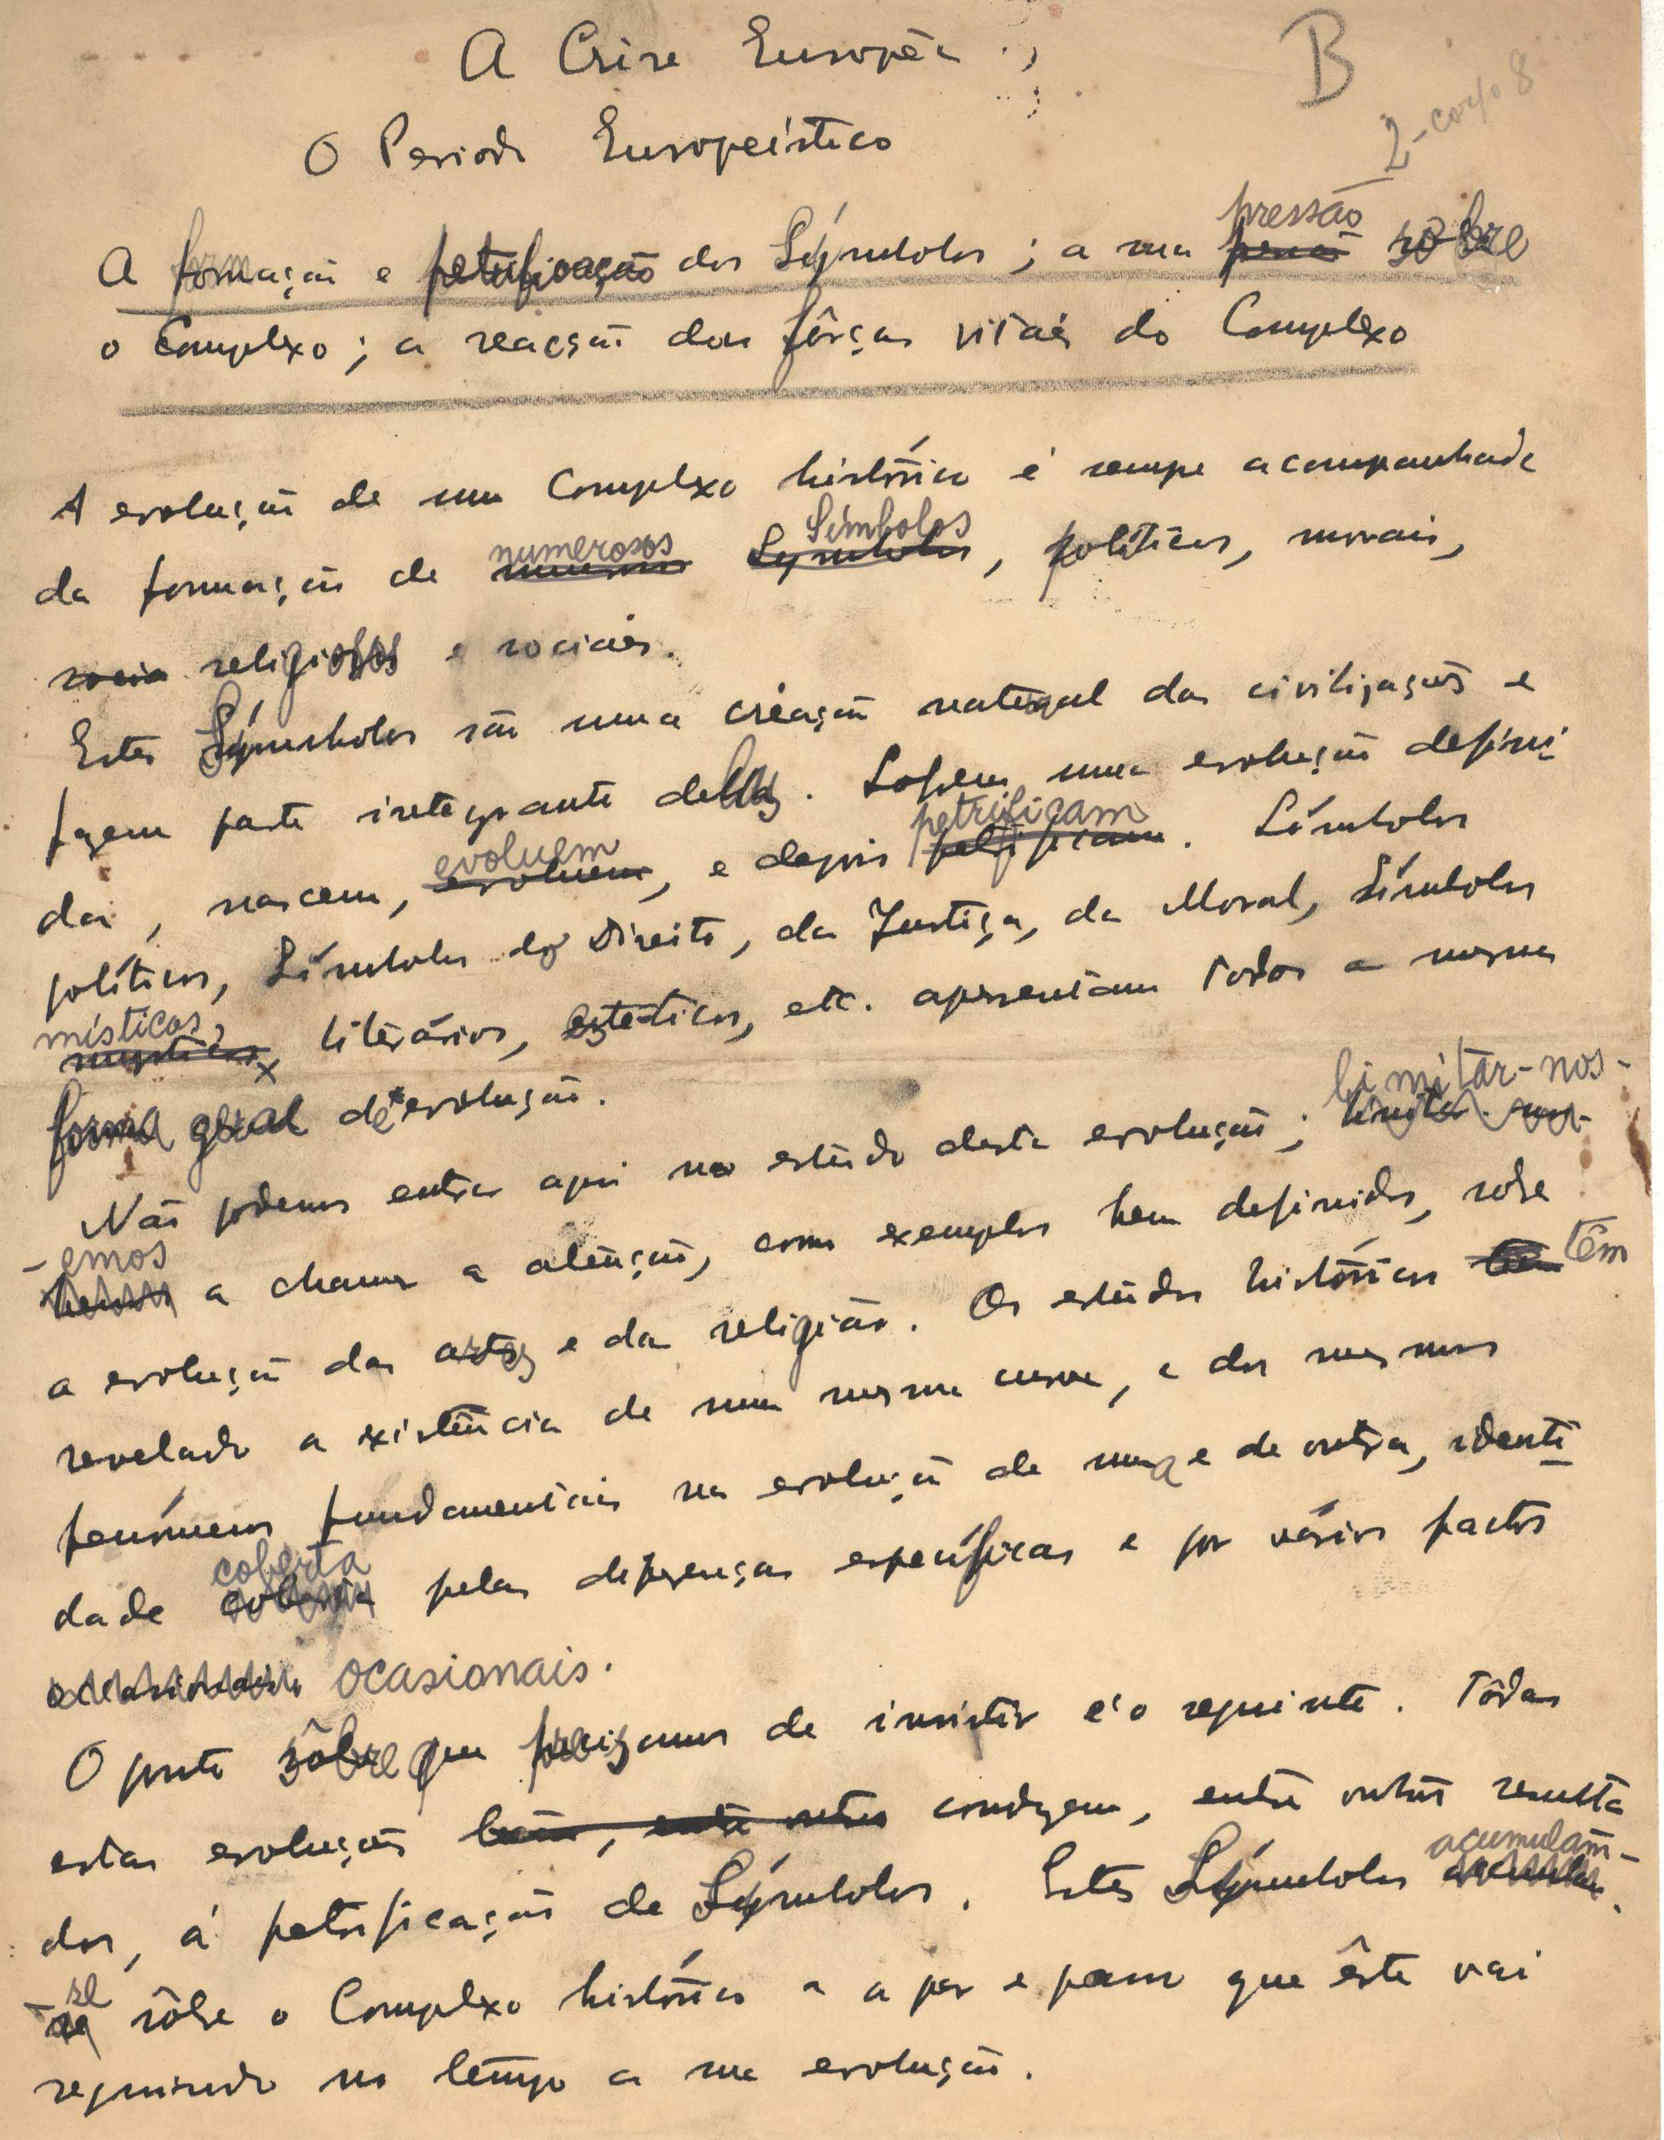 A Crise Europêa
B
2-corpo 8
O Periodo Europeístico
A formação e petrificação dos Símbolos ; a sua pressão sôbre
o Complexo ; a reacção das fôrças vitais do Complexo
A evolução de um Complexo histórico é sempre acompanhada
da formação de numerosos Símbolos, politicos, morais,
religiosos e sociais.
Estes Símbolos são uma criação natural das civilizações e
fazem parte integrante delas. Sofrem uma evolução defini
da, nascem, evoluem, e depois petrificam. Símbolos
políticos, Símbolos do Direito, da Justiça, da Moral, Símbolos
místicos, literários, esteticos, etc. apresentam todos a mesma
forma geral de evolução.
Não podemos entrar aqui no estudo desta evolução ; limitar-nos-
-emos a chamar a atenção, como exemplos bem definidos, sobre
a evolução das artes e da religião. Os estudos históricos têm
revelado a existência de uma mesma curva, e dos mesmos
fenómenos fundamentais na evolução de uma e de outra, identi
dade coberta pelas diferenças específicas e por vários factos
ocasionais.
O ponto sôbre que precisamos de insistir é o seguinte. Tôdas
estas evoluções conduzem, entre outros resulta
dos, á petrificação de Símbolos. Estes Símbolos acumulam-
-se sôbre o Complexo histórico a a par e passo que êste vai
seguindo no tempo a sua evolução.